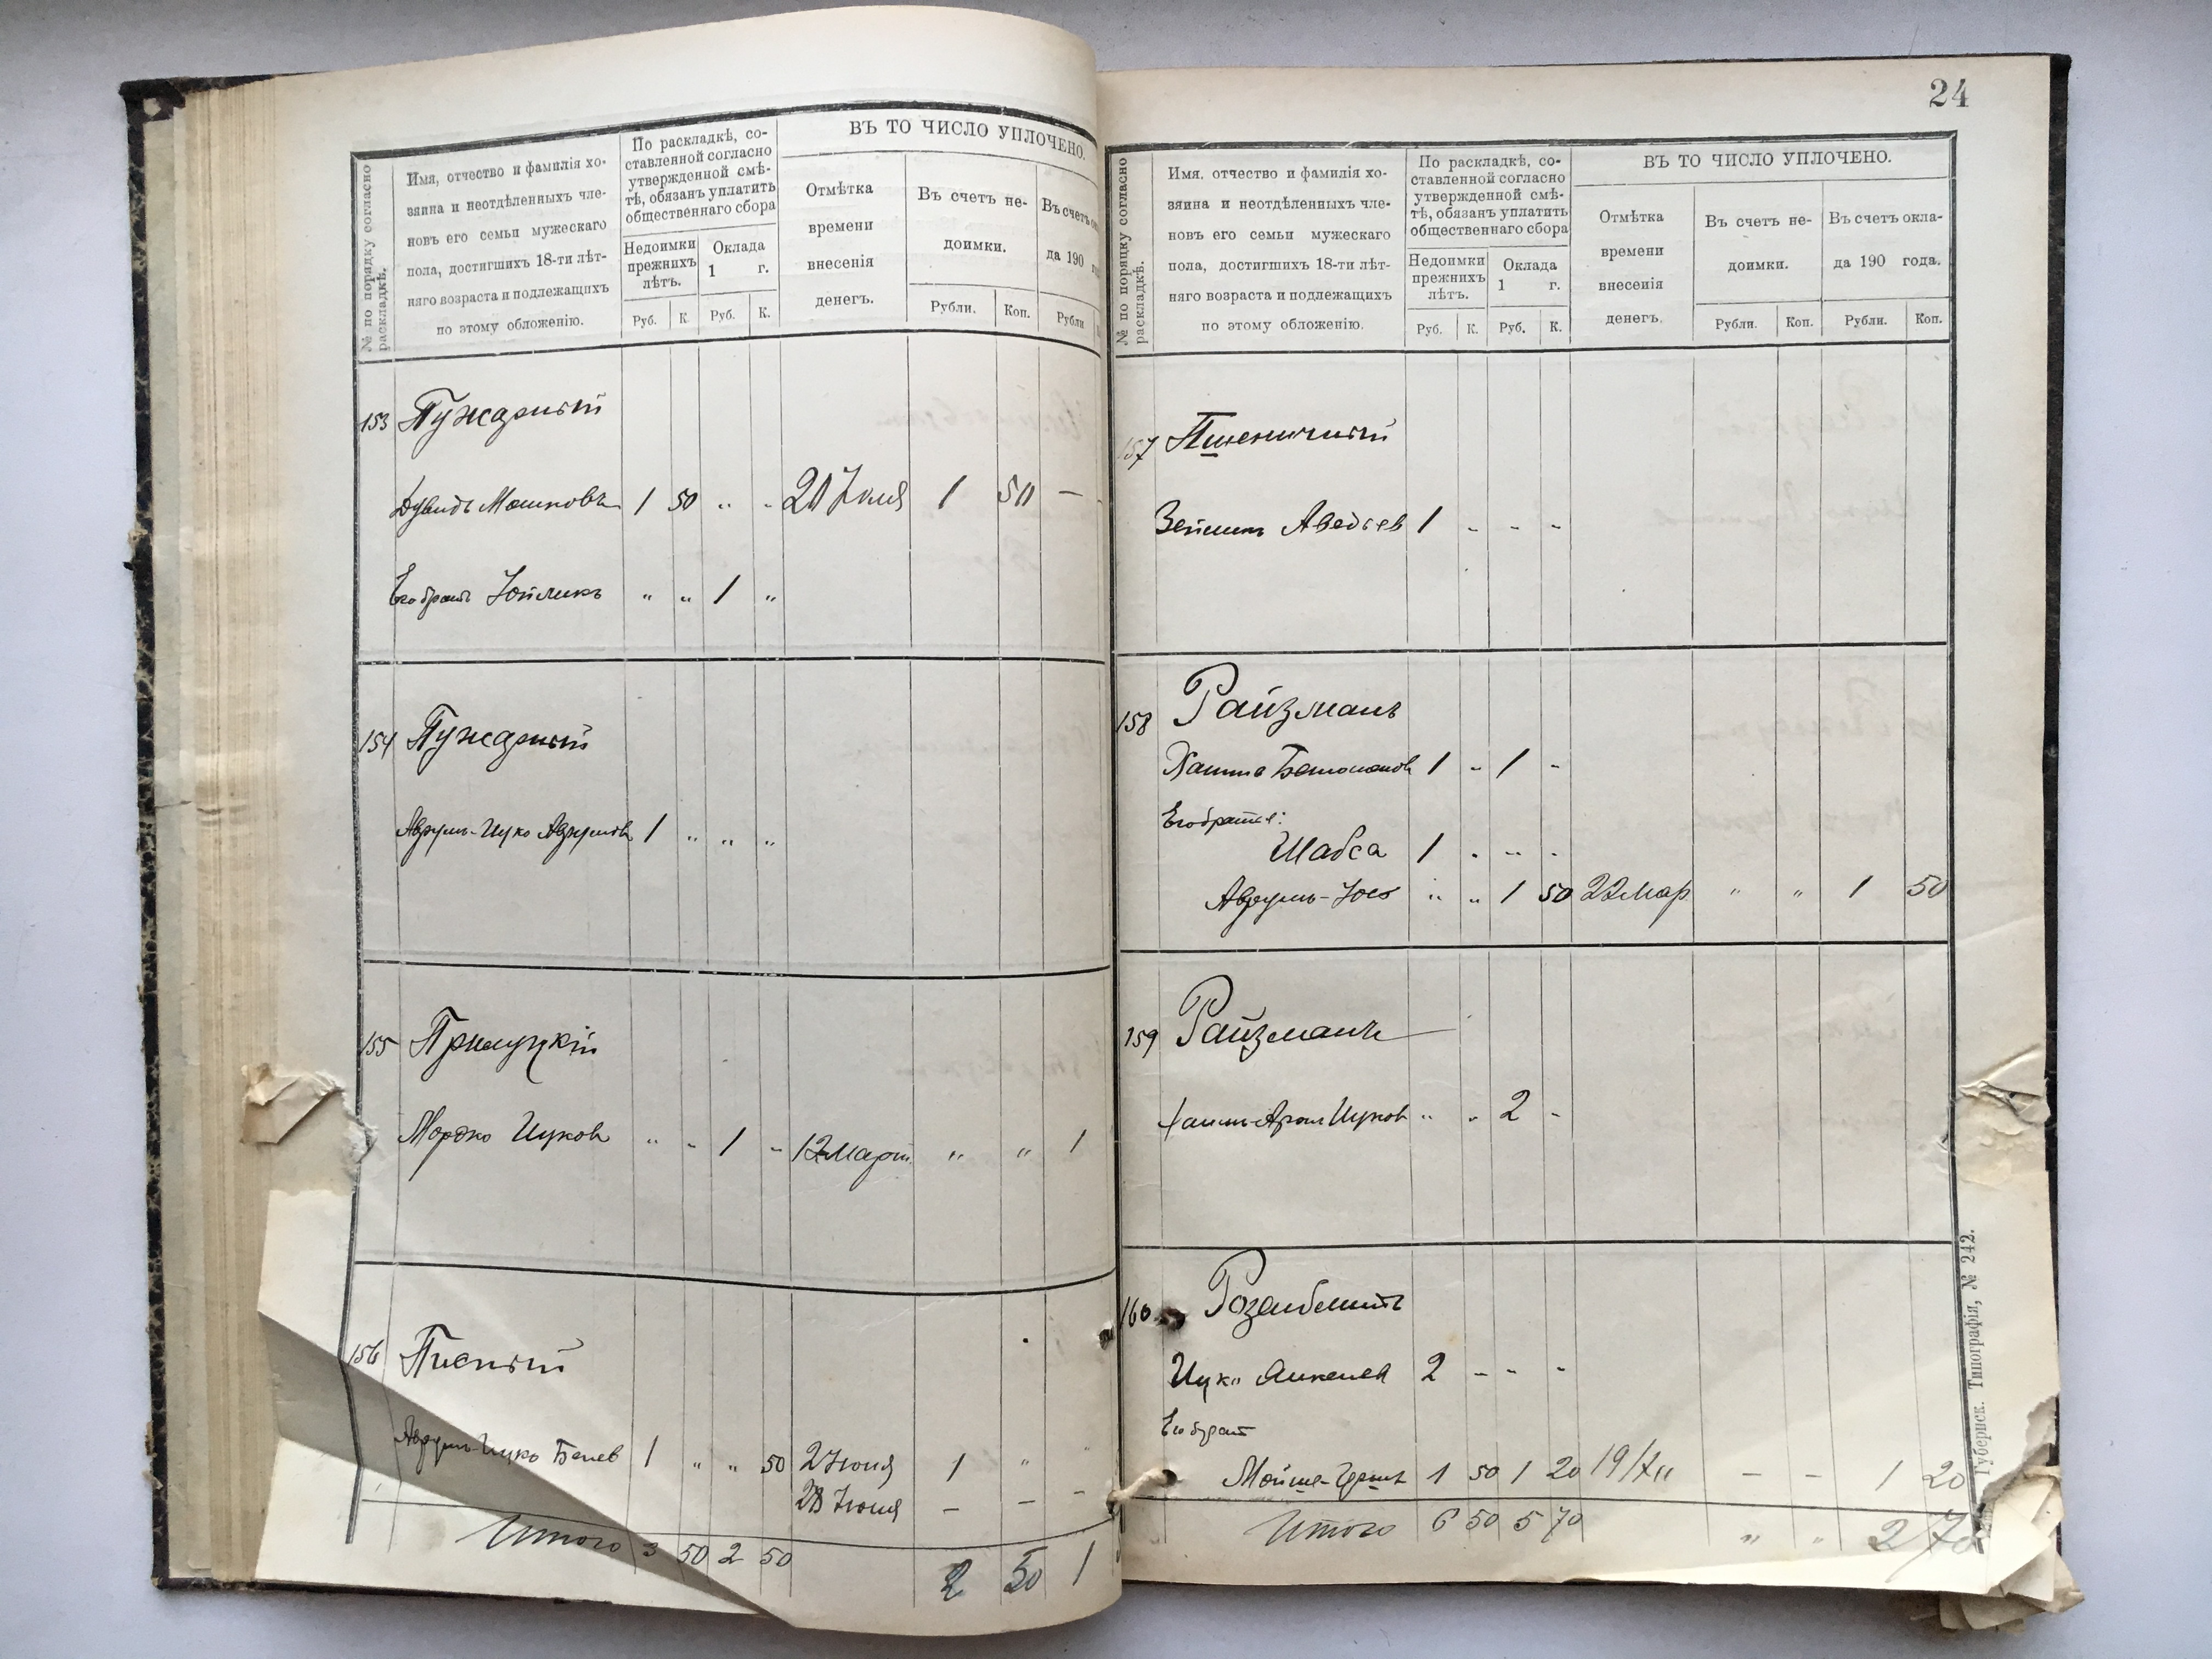 № по порядку согласно раскладкѣ.
Имя, отчество и фамилія хо-
зяина и неотдѣленныхъ чле-
новъ его семьи мужескаго
пола, достигшихъ 18-ти лѣт-
няго возраста и подлежащихъ
по этому обложенію.
По раскладкѣ, со-
ставленной согласно
утвержденной смѣ-
тѣ, обязанъ уплатить
общественнаго сбора
Недоимки
прежнихъ
лѣтъ.
Оклада
1 г.
Руб. К. Руб. К.
ВЪ ТО ЧИСЛО УПЛОЧЕНО.
Отмѣтка
времени
внесенія
денегъ.
Въ счетъ не-
доимки.
Рубли. Коп.
Въ счетъ
да 190
Рубли
153 Пужарный
Дувидъ Мошковъ 1 50 " " 20 Июля 1 50 —
Его братъ Іойликъ " " 1 "
154 Пужарный
Аврумъ-Ицко Аврумовъ 1 " " "
155 Прилуцкій
Мордко Ицковъ " " 1 " 12 Март. " " 1
156 Писный
Аврумъ-Ицко Беневъ 1 " " 50 2 Іюня 1 "
28 Іюня — — -
Итого 3 50 2 50 2 50 1
24
№ по порядку согласно раскладкѣ.
Имя, отчество и фамилія хо-
зяина и неотдѣленныхъ чле-
новъ его семьи мужескаго
пола, достигшихъ 18-ти лѣт-
няго возраста и подлежащихъ
по этому обложенію.
По раскладкѣ, со-
ставленной согласно
утвержденной смѣ-
тѣ, обязанъ уплатить
общественнаго сбора
Недоимки
прежнихъ
лѣтъ.
Оклада
1 г.
Руб. К. Руб. К.
ВЪ ТО ЧИСЛО УПЛОЧЕНО.
Отмѣтка
времени
внесенія
денегъ.
Въ счетъ не-
доимки.
Рубли. Коп.
Въ счетъ окла-
да 190 года.
Рубли. Коп.
157 Пшеничный
Зейликъ Аведьев 1 - - -
158 Райзманъ
1 - 1 -
Его братья:
Шабса 1 - " -
Аврумъ-Іось " " 1 50 22 Мар " " 1 50
159 Райзманъ
Хаимъ-Арон Ицков " " 2 -
160 Розенблитъ
Ицко Анкелев 2 - - -
Его брат
Мойше-Герш 1 50 1 20 19/XII — — 1 20
Итого 6 50 5 70 " " 2 70
Губернск. Типографія, № 242.